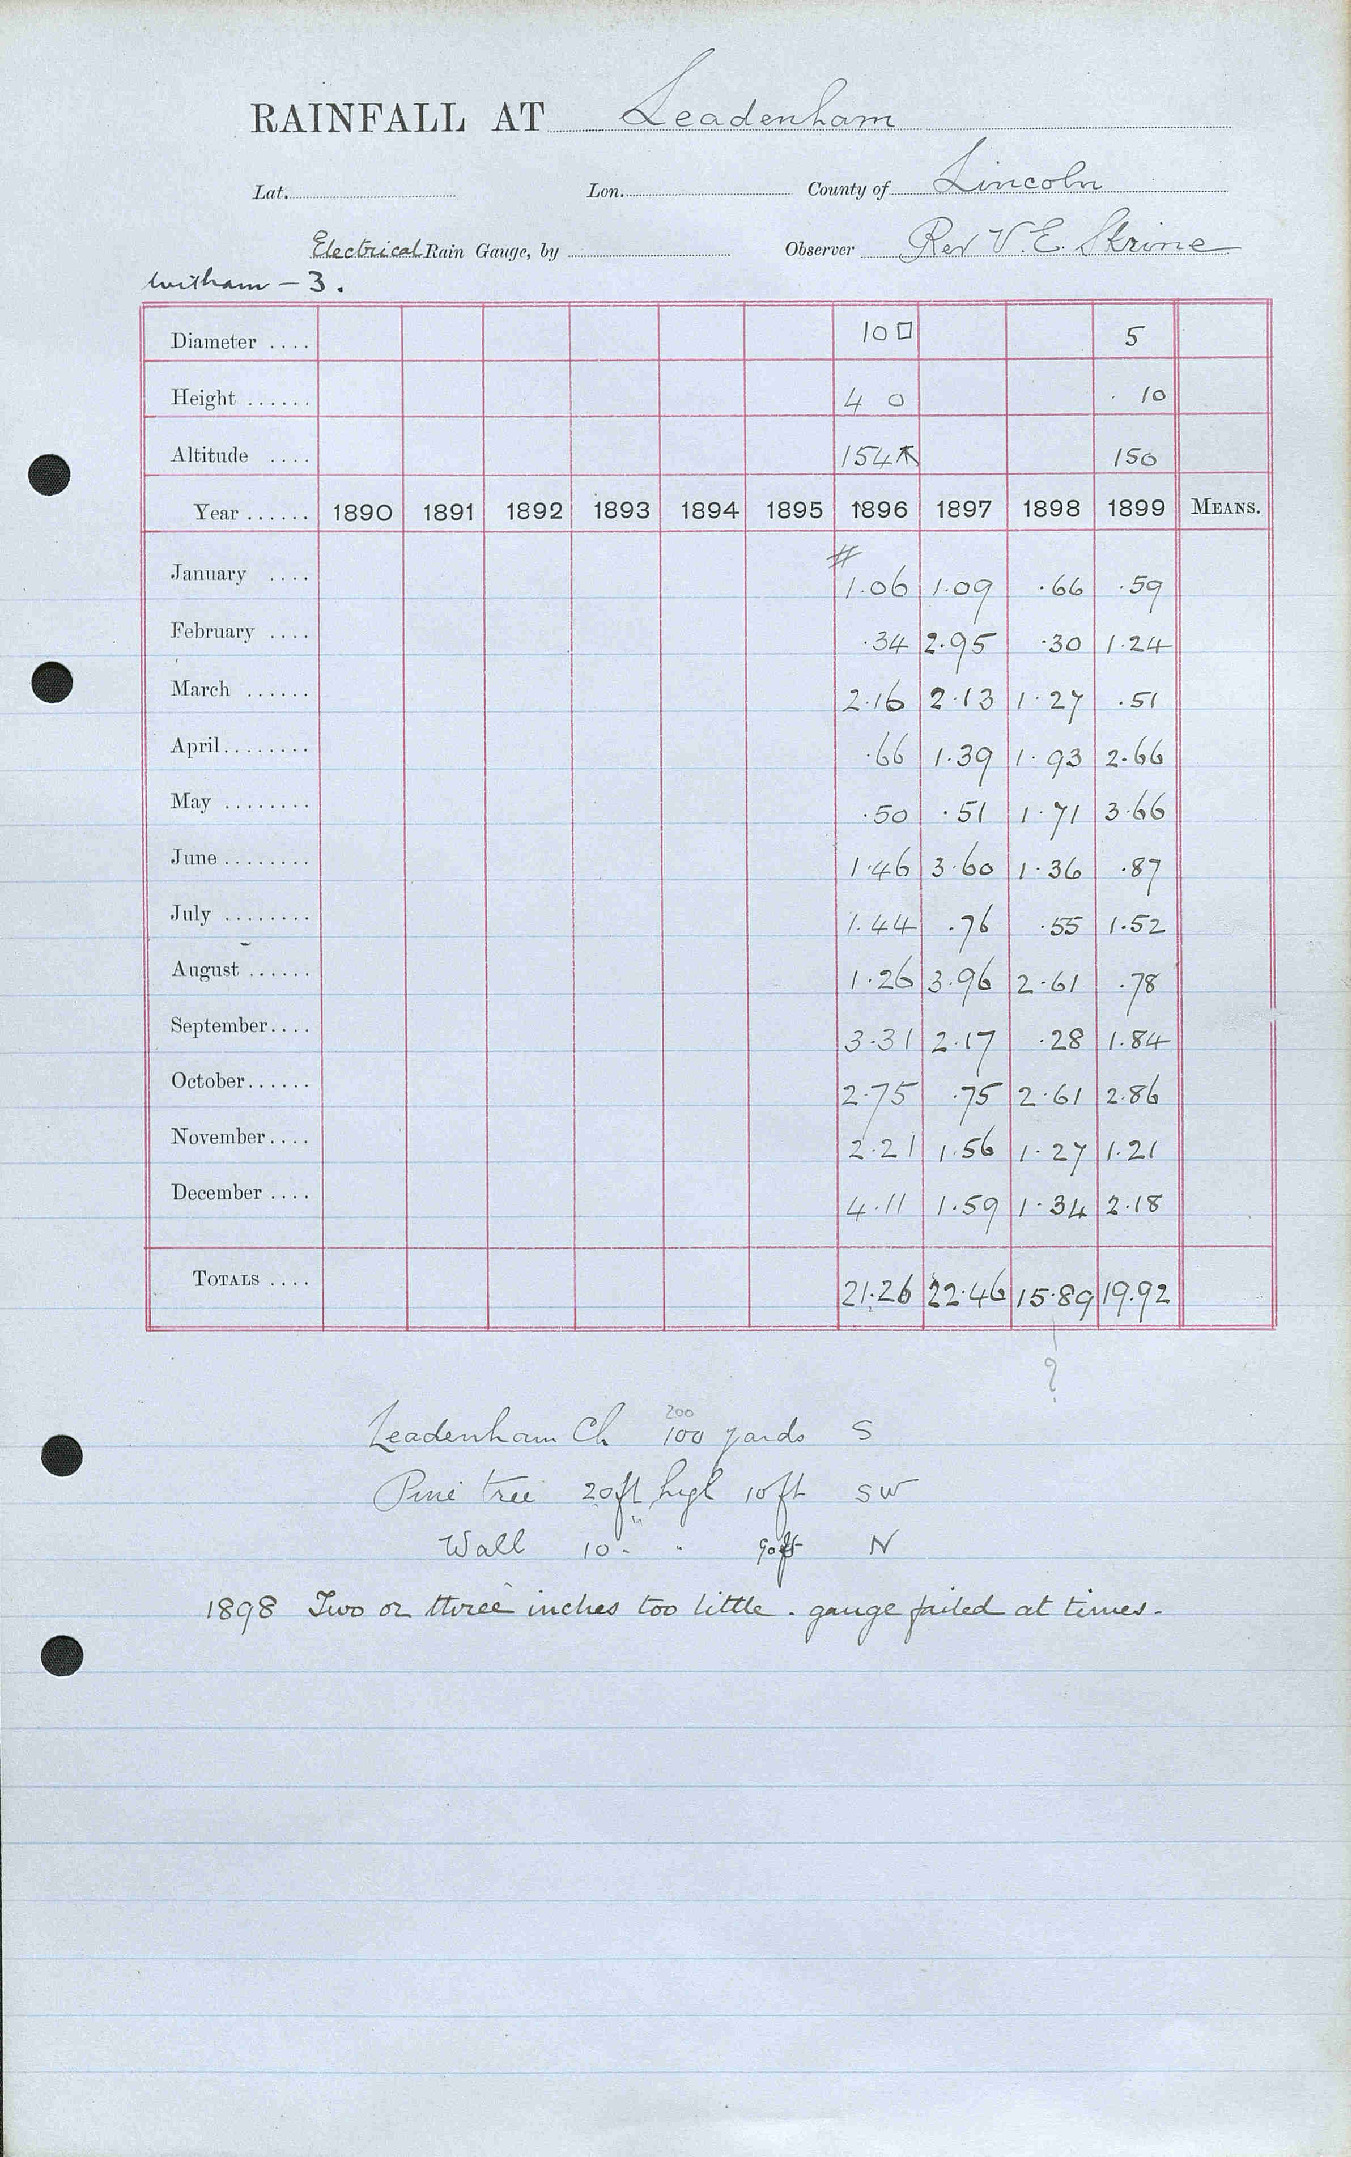 RAINFALL AT Leadenham
Lat. Lon. County of Lincoln
Electrical Rain Gauge, by Observer Rev V. E. Skrine
Witham - 3.
Diameter .... 10 □ 5
Height ...... 4 0 . 10
Altitude .... 154 150
Year ...... 1890 1891 1892 1893 1894 1895 1896 1897 1898 1899 MEANS.
#
January .... 1.06 1.09 .66 .59
February .... .34 2.95 .30 1.24
March ...... 2.16 2.13 1.27 .51
April ........ .66 1.39 1.93 2.66
May ........ .50 .51 1.71 3.66
June ........ 1.46 3.60 1.36 .87
July ........ 1.44 .76 .55 1.52
August ...... 1.26 3.96 2.61 .78
September.... 3.31 2.17 .28 1.84
October...... 2.75 .75 2.61 2.86
November.... 2.21 1.56 1.27 1.21
December .... 4.11 1.59 1.34 2.18
TOTALS .... 21.26 22.46 15.89 19.92
?
200
Leadenham Ch 100 yards S
Pine tree 20ft high 10ft SW
Wall 10 " " N
1898 Two or three inches too little . gauge failed at times.